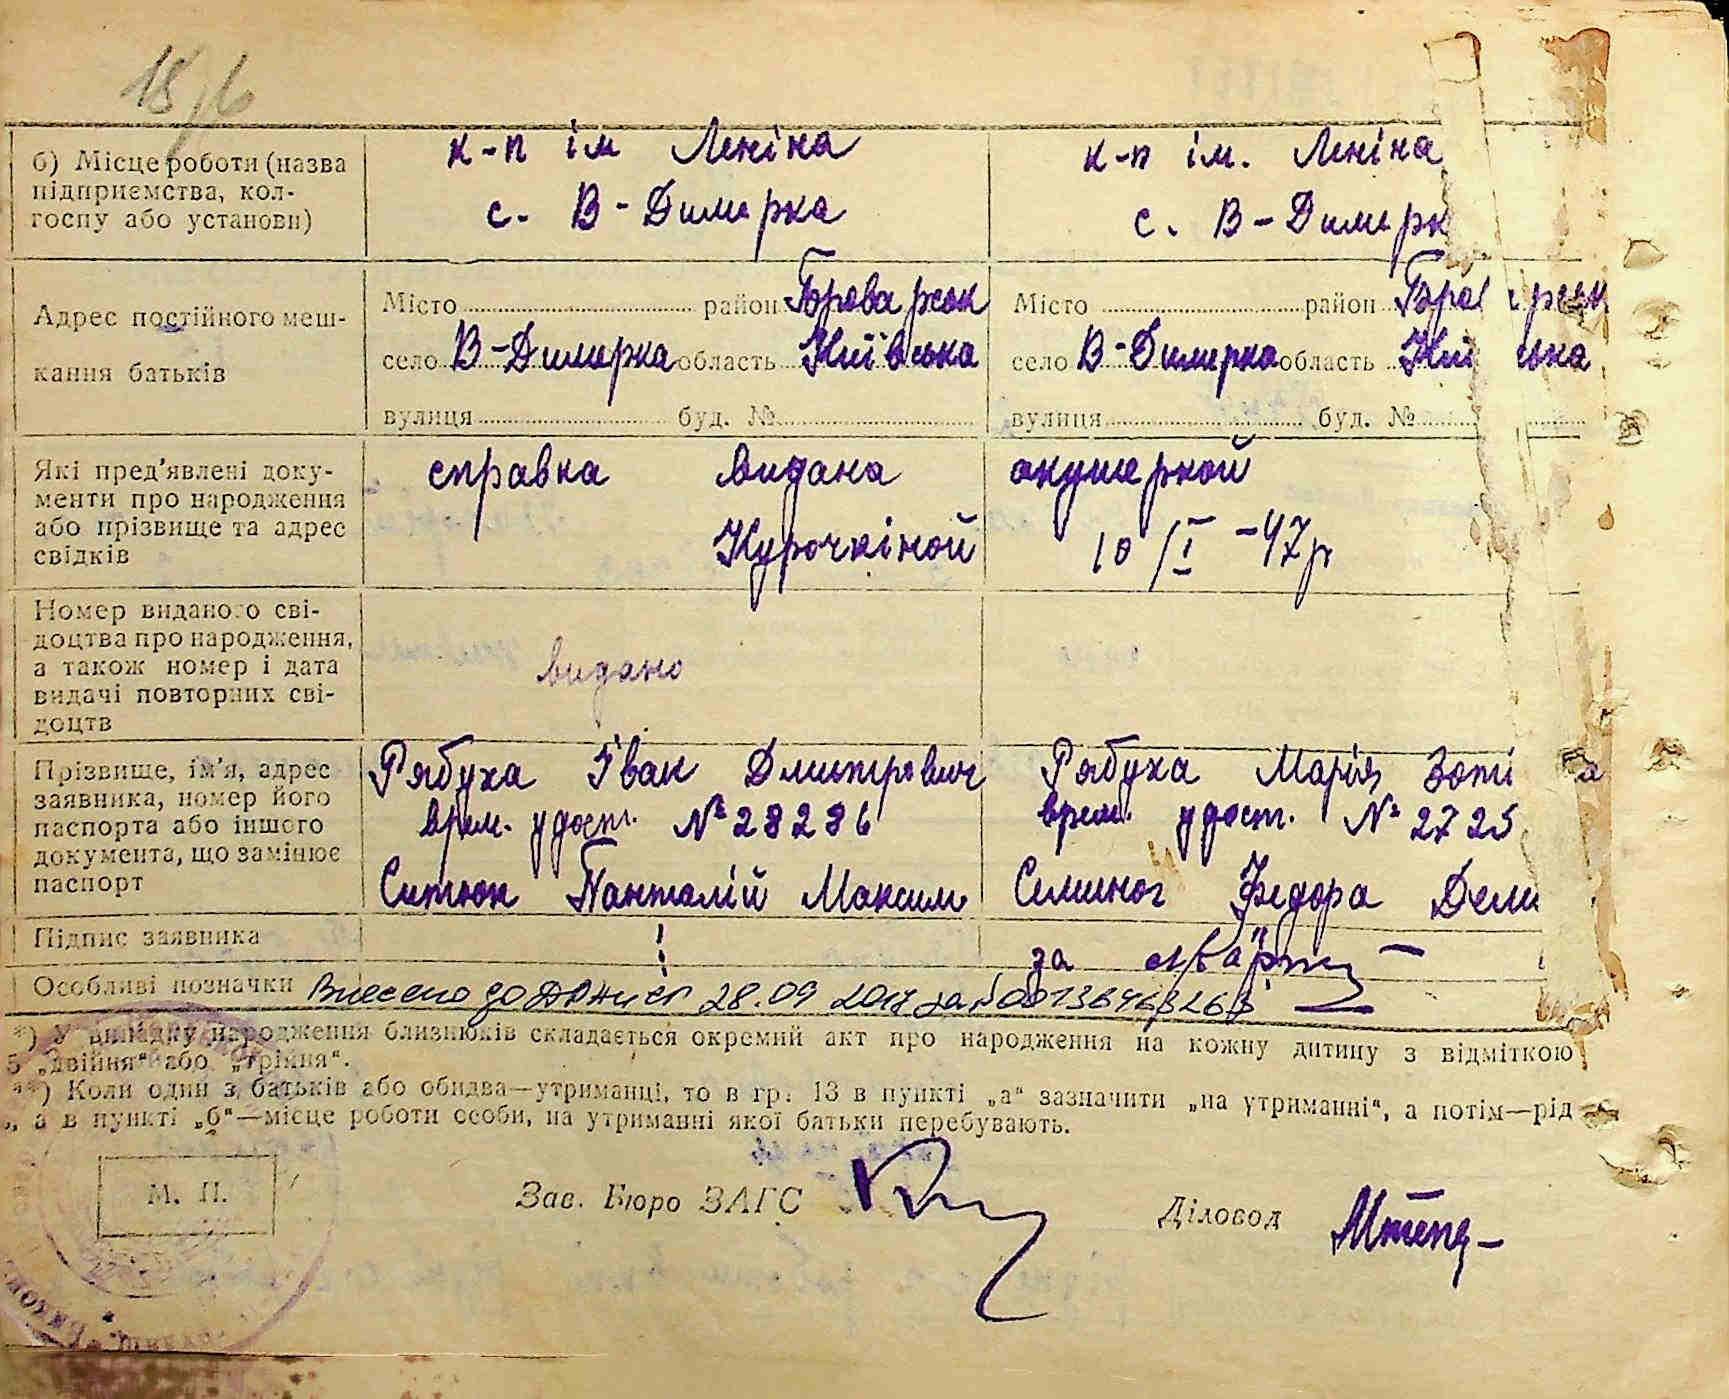 18
б) Місце роботи (назва
підприємства, кол-
госпу або установи)
к-п ім Леніна
с. В-Димерка
к-п ім. Леніна
с. В-Димерк
Адрес постійного меш-
кання батьків
Місто район Броварськ
село В-Димерка область Київська
вулиця буд. №
Місто район
село В-Димерка область
вулиця буд. №
Які пред'явлені доку-
менти про народження
або прізвище та адрес
свідків
справка видана акушеркой
Курочкіной 10/I -47р
Номер виданого сві-
доцтва про народження,
а також номер і дата
видачі повторних сві-
доцтв
видано
Прізвище, ім'я, адрес
заявника, номер його
паспорта або іншого
документа, що замінює
паспорт
Рябуха Іван Дмитрович
врем. удост. № 28286
Ситюк Панталій Максим
Рябуха Марія Зоті
врем. удост. № 2725
Семиног Федора Деми
Підпис заявника
за
Особливі позначки Внесено до 28.09 за № 00136463263
*) У випадку народження близнюків складається окремий акт про народження на кожну дитину з відміткою
„двійня“ або „трійня“.
**) Коли один з батьків або обидва—утриманці, то в гр. 13 в пункті „а“ зазначити „на утриманні“, а потім—рід
а в пункті „б“—місце роботи особи, на утриманні якої батьки перебувають.
М. П.
Зав. Бюро ЗАГС
Діловод